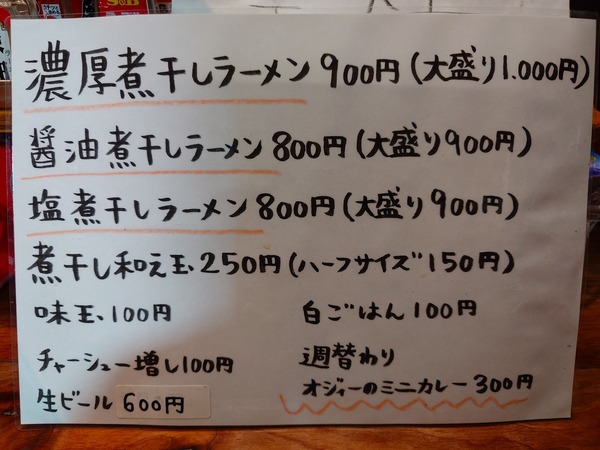 S&B
濃厚煮干しラーメン 900円(大盛り1.000円)
醤油煮干しラーメン 800円(大盛り900円)
塩煮干しラーメン 800円(大盛り900円)
煮干し和え玉、250円(ハーフサイズ150円)
味玉、100円
白ごはん 100円
チャーシュー増し100円
週替わり
オジィーのミニカレー 300円
生ビール 600円